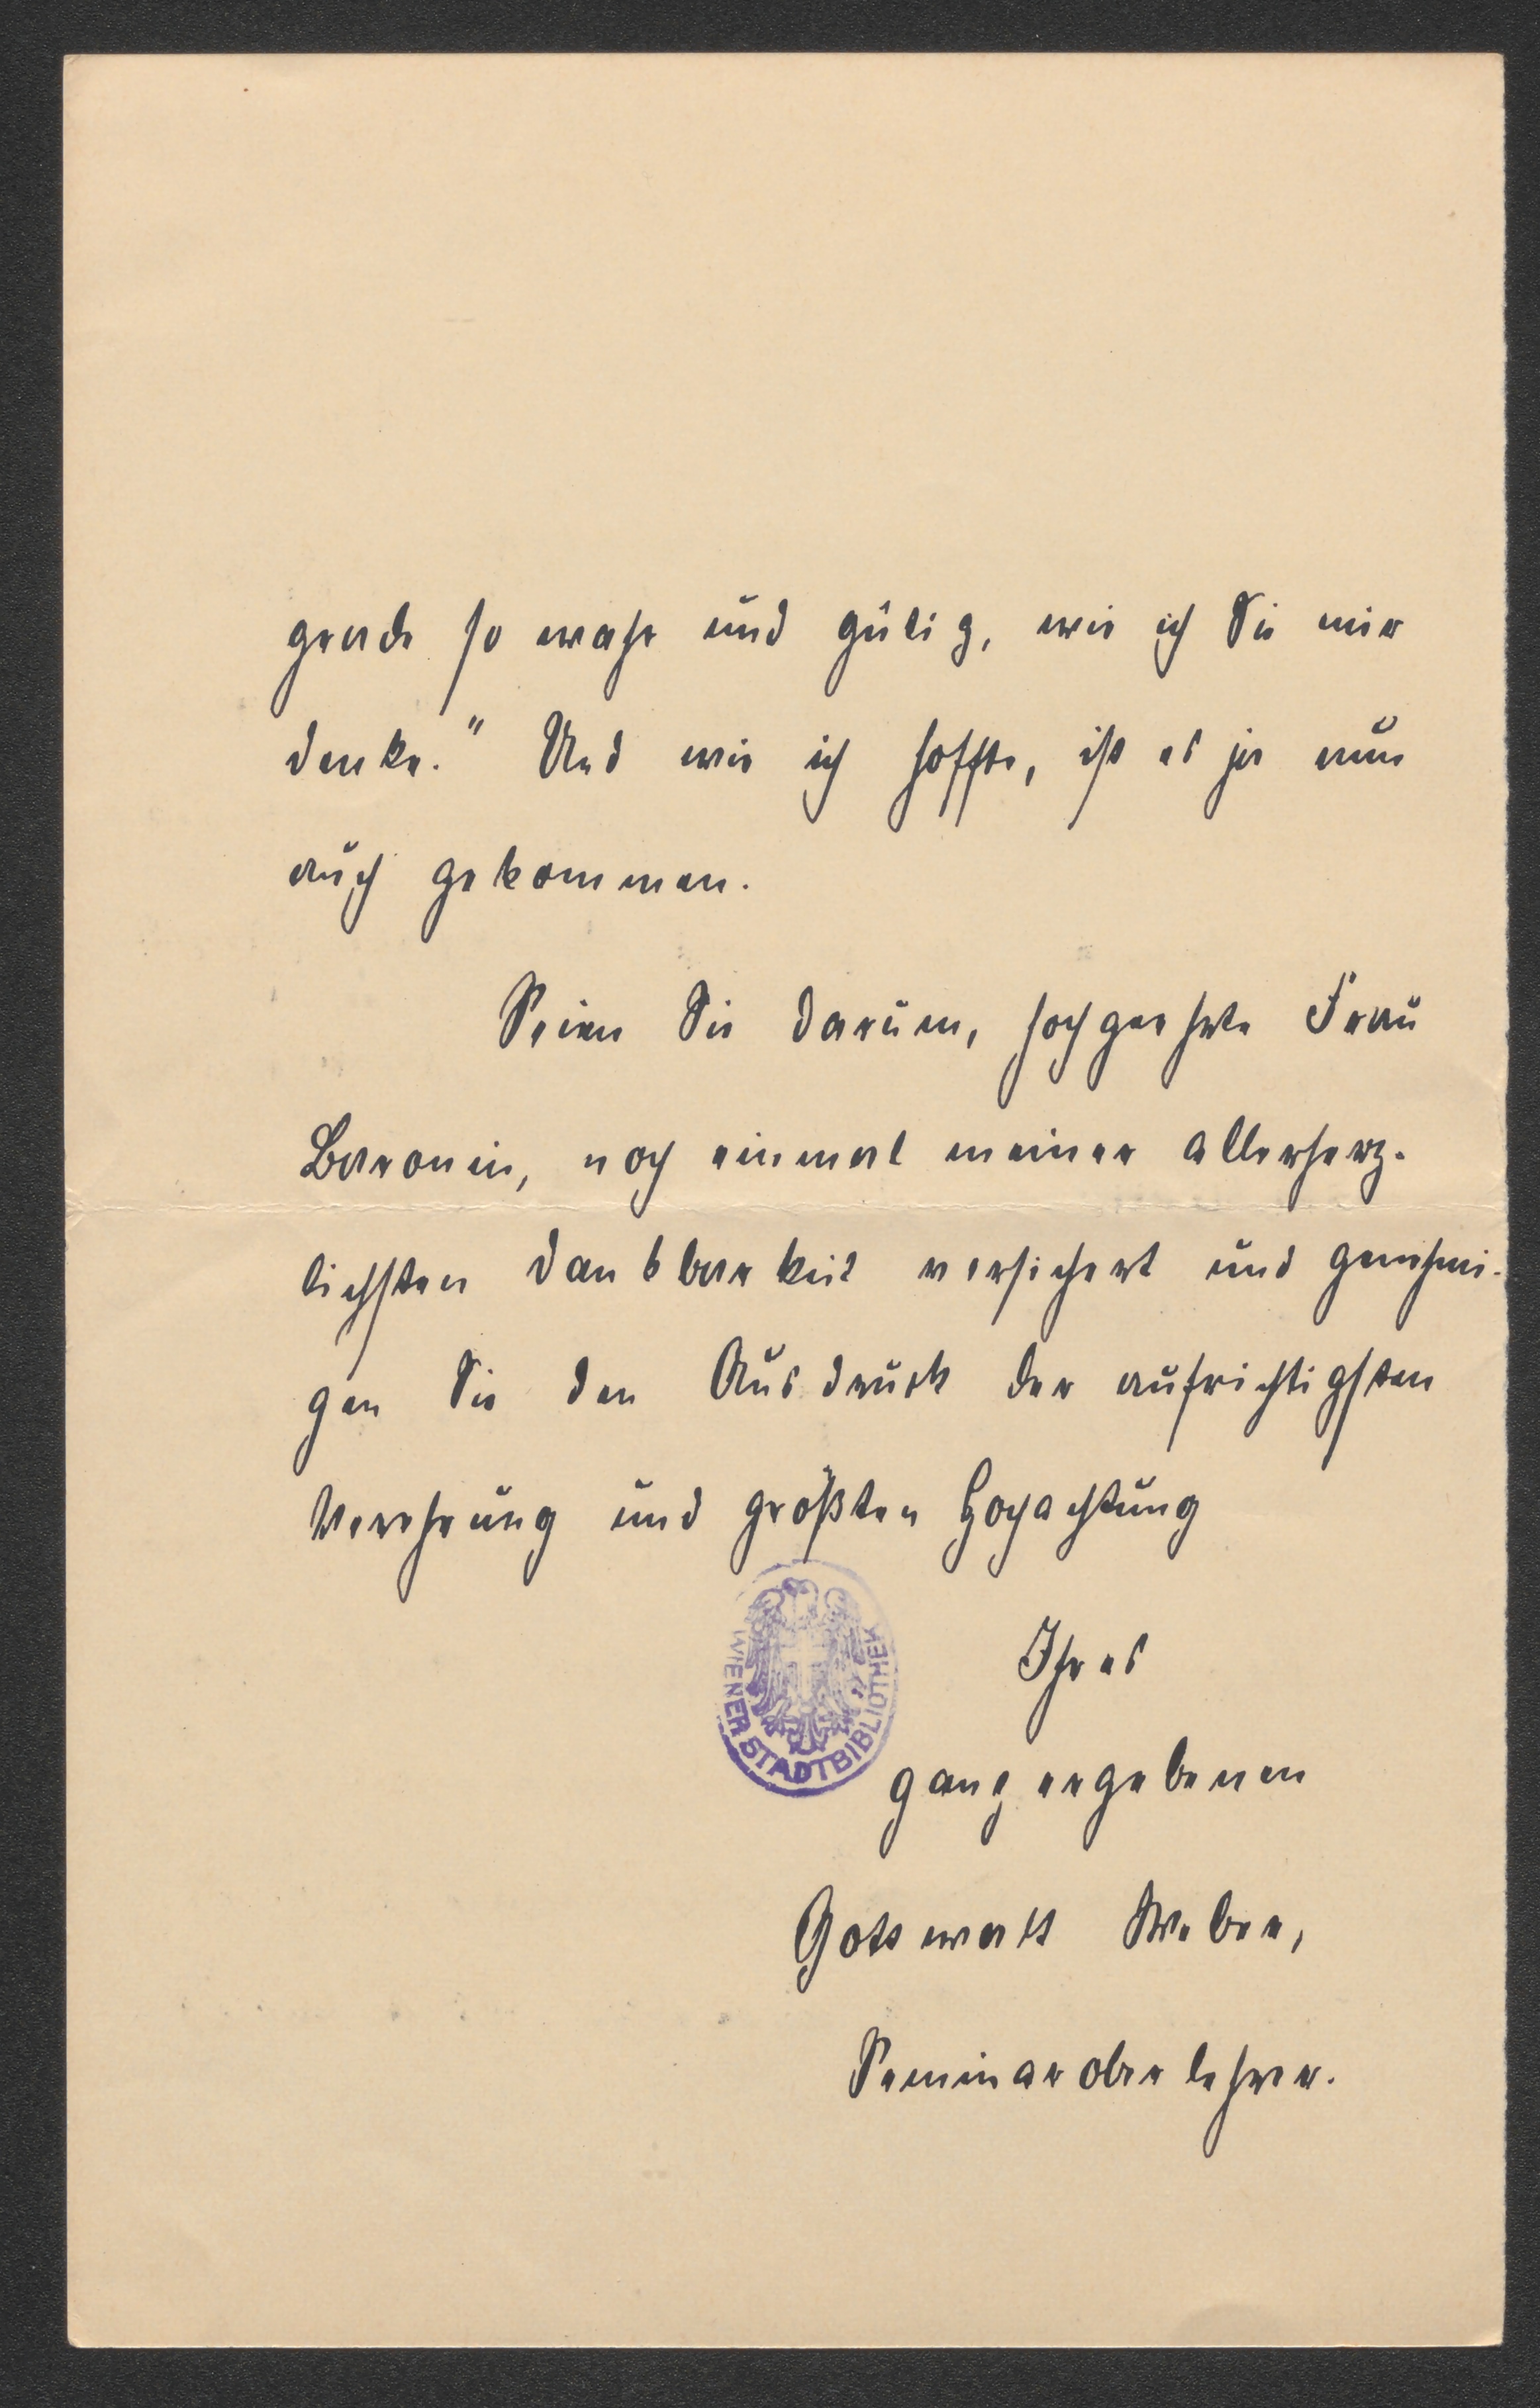 grade so wahr und gütig, wie ich Sie mir
denke." Und wie ich hoffte, ist es ja nun
auch gekommen.
Seien Sie darum, hochgeehrte Frau
Baronin, noch einmal meiner allerherz-
lichsten Dankbarkeit versichert und genehmi-
gen Sie den Ausdruck der aufrichtigsten
Verehrung und größten Hochachtung
WIENER STADTBIBLIOTHEK
Ihres
ganz ergebenen
Gottwalt Weber,
Seminaroberlehrer.